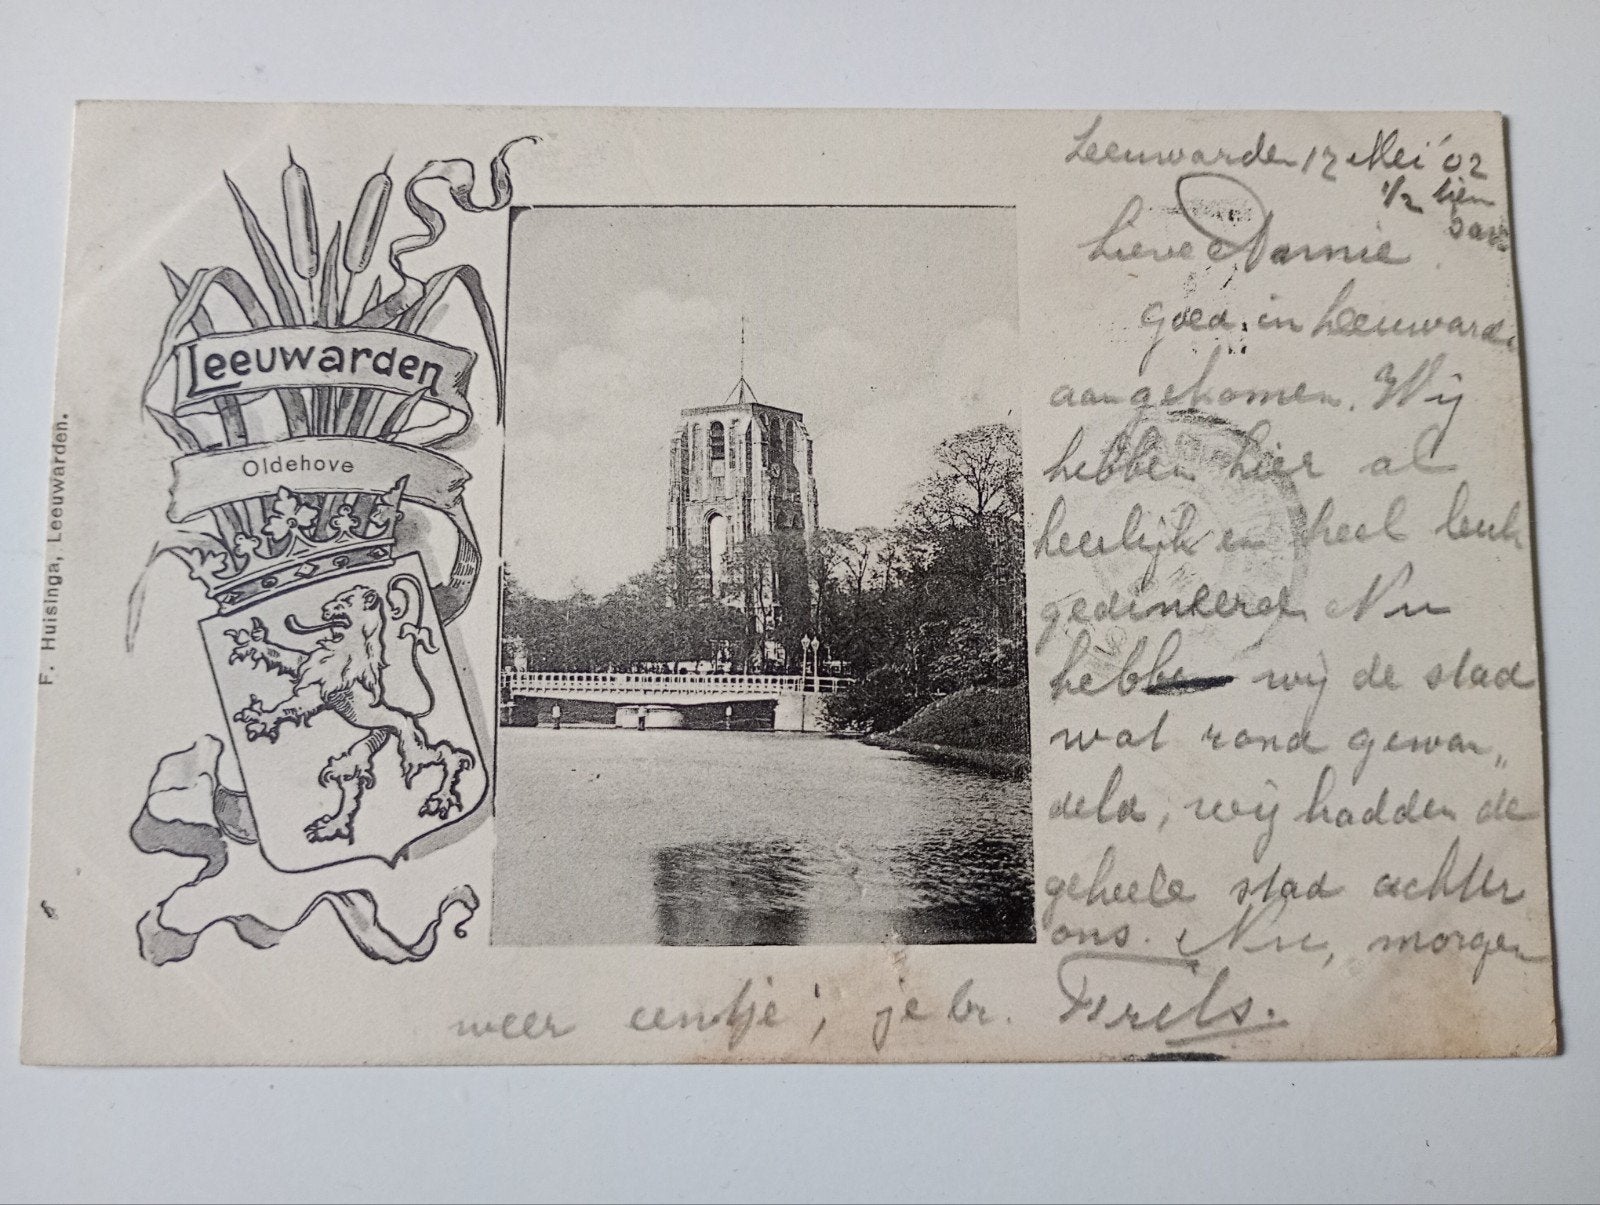 Leeuwarden
Oldehove
F. Huisinga, Leeuwarden.
Leeuwarden 17 Mei '02
1/2 tien
Lieve Annie
goed in Leeuward
aangekomen. Wij
hebben hier al
heerlijk en heel leuk
gedineerd Nu
hebben wij de stad
wat rond gewan„
deld, wij hadden de
geheele stad achter
ons. Nu, morgen
weer eentje, je br. Frits.